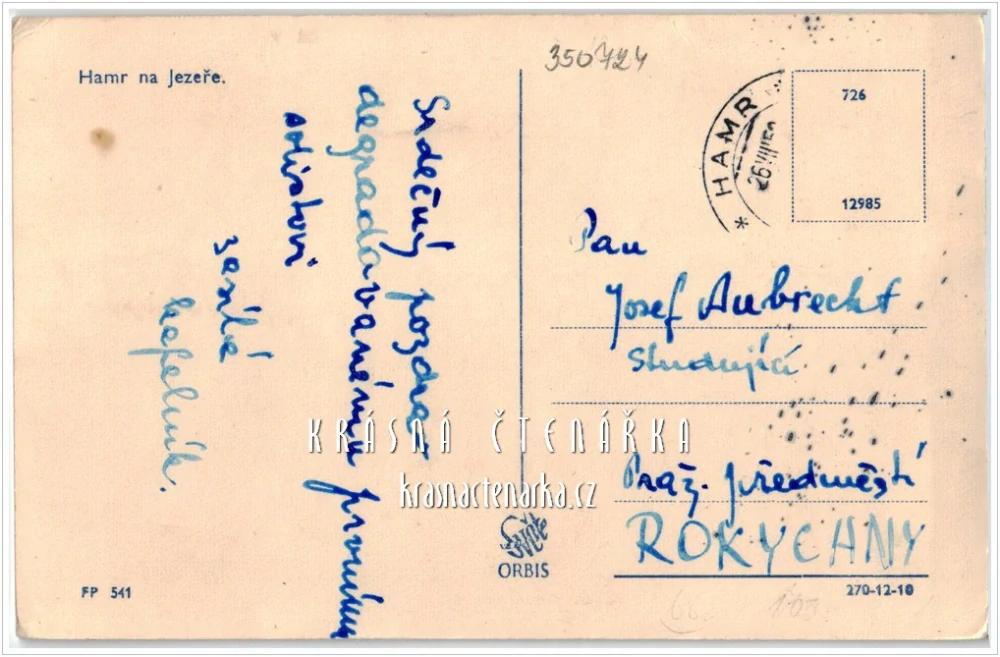 Hamr na Jezeře.
Srdečný pozdrav
degradovanému prvnímu
solistovi
zasílá
kapelník.
350724
HAMR
26 VII
726
12985
Pan
Josef Aubrecht
studující
Praž. předměstí
ROKYCANY
KRÁSNÁ ČTENÁŘKA
krasnactenarka.cz
ORBIS
FP 541
270-12-10